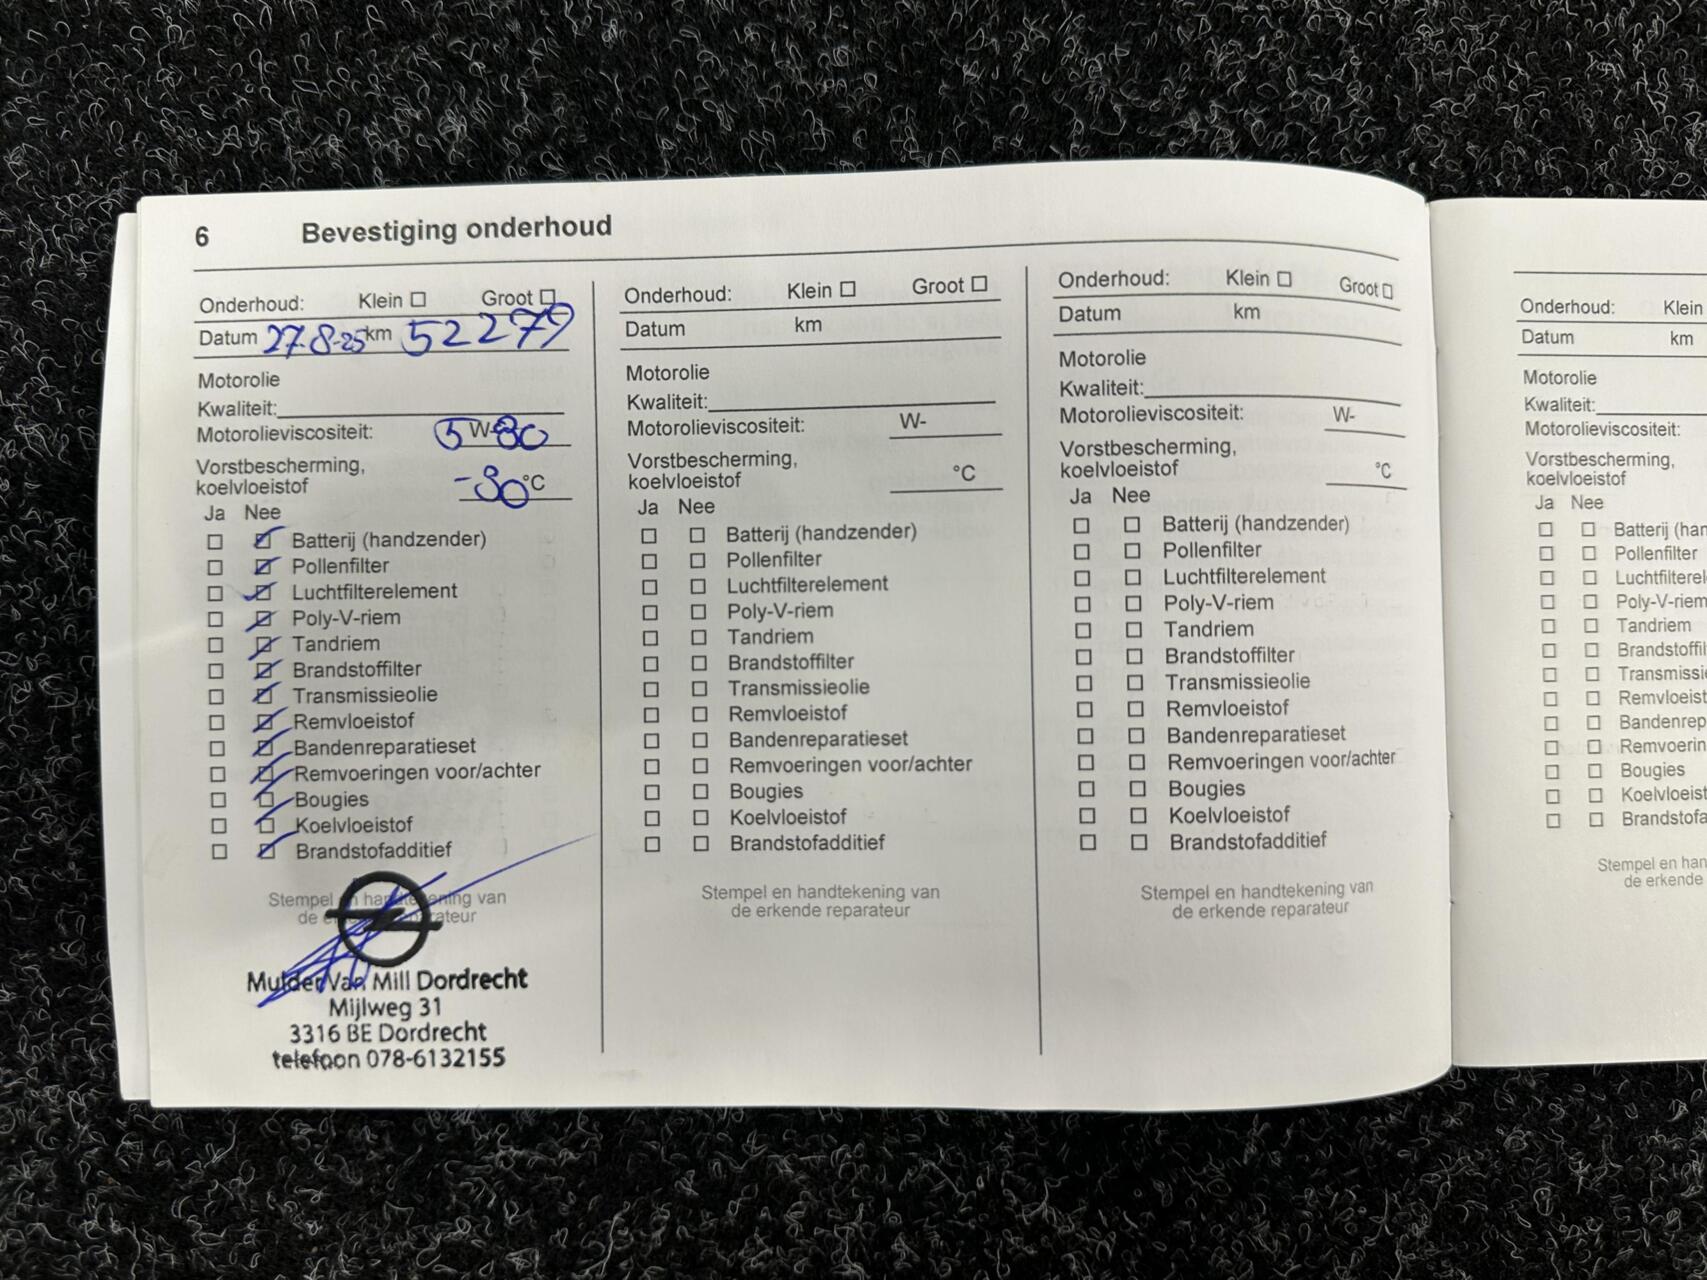 6 Bevestiging onderhoud
Onderhoud: Klein Groot
Datum 27-8-25 km 52279
Motorolie
Kwaliteit:
Motorolieviscositeit: 5 W-30
Vorstbescherming,
koelvloeistof -30 °C
Ja Nee
Batterij (handzender)
Pollenfilter
Luchtfilterelement
Poly-V-riem
Tandriem
Brandstoffilter
Transmissieolie
Remvloeistof
Bandenreparatieset
Remvoeringen voor/achter
Bougies
Koelvloeistof
Brandstofadditief
Stempel en handtekening van
de erkende reparateur
Mulder Van Mill Dordrecht
Mijlweg 31
3316 BE Dordrecht
telefoon 078-6132155
Onderhoud: Klein Groot
Datum km
Motorolie
Kwaliteit:
Motorolieviscositeit: W-
Vorstbescherming,
koelvloeistof °C
Ja Nee
Batterij (handzender)
Pollenfilter
Luchtfilterelement
Poly-V-riem
Tandriem
Brandstoffilter
Transmissieolie
Remvloeistof
Bandenreparatieset
Remvoeringen voor/achter
Bougies
Koelvloeistof
Brandstofadditief
Stempel en handtekening van
de erkende reparateur
Onderhoud: Klein Groot
Datum km
Motorolie
Kwaliteit:
Motorolieviscositeit: W-
Vorstbescherming,
koelvloeistof °C
Ja Nee
Batterij (handzender)
Pollenfilter
Luchtfilterelement
Poly-V-riem
Tandriem
Brandstoffilter
Transmissieolie
Remvloeistof
Bandenreparatieset
Remvoeringen voor/achter
Bougies
Koelvloeistof
Brandstofadditief
Stempel en handtekening van
de erkende reparateur
Onderhoud: Klein
Datum km
Motorolie
Kwaliteit:
Motorolieviscositeit:
Vorstbescherming,
koelvloeistof
Ja Nee
Batterij (han
Pollenfilter
Luchtfilterel
Poly-V-riem
Tandriem
Brandstoffil
Transmissi
Remvloeist
Bandenrep
Remvoerin
Bougies
Koelvloeist
Brandstofa
Stempel en han
de erkende